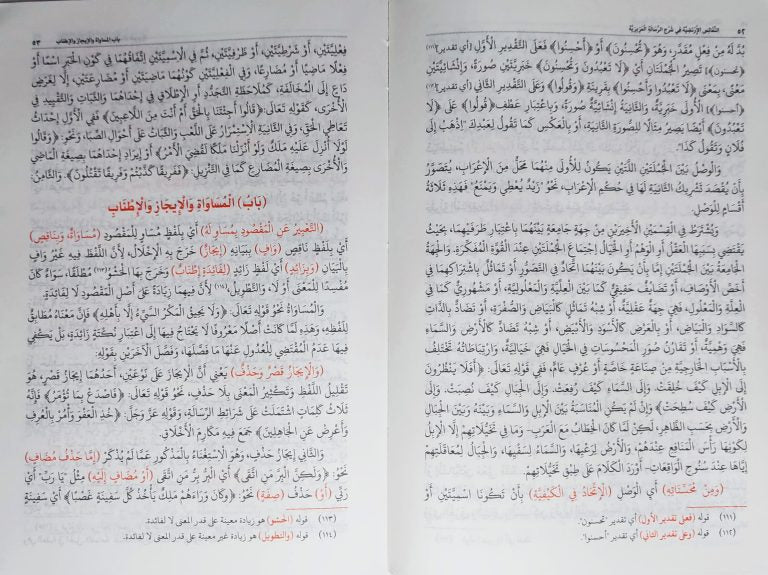 ٥٢ النفائس الارتضية في شرح الرسالة العزيزية
بُدَّ لَهُ مِنْ فِعْلٍ مُقَدَّرٍ، وَهُوَ ﴿تُحْسِنُونَ﴾ أَوْ ﴿أَحْسِنُوا﴾ فَعَلَى التَّقْدِيرِ الْأَوَّلِ [أي تقدير (١١١)
تحسنون] تَصِيرُ الْجُمْلَتَانِ أَيْ ﴿لَا تَعْبُدُونَ وَتُحْسِنُونَ﴾ خَبَرِيَّتَيْنِ صُورَةً، وَإِنْشَائِيَّتَيْنِ
مَعْنًى، بِمَعْنَى ﴿لَا تَعْبُدُوا وَأَحْسِنُوا﴾ بِقَرِينَةِ ﴿وَقُولُوا﴾ وَعَلَى التَّقْدِيرِ الثَّانِي [أي تقدير (١١٢)
أحسنوا] الْأُولَى خَبَرِيَّةٌ، وَالثَّانِيَةُ إِنْشَائِيَّةٌ صُورَةً، وَبِاعْتِبَارِ عَطْفِ ﴿قُولُوا﴾ عَلَى ﴿لَا
تَعْبُدُونَ﴾ أَيْضًا يَصِيرُ مِثَالًا لِلصُّورَةِ الثَّانِيَةِ، أَوْ بِالْعَكْسِ كَمَا تَقُولُ لِعَبْدِكَ "اِذْهَبْ إِلَى
فُلَانٍ وَتَقُولُ كَذَا".
وَالْوَصْلُ بَيْنَ الْجُمْلَتَيْنِ اللَّتَيْنِ يَكُونُ لِلْأُولَى مِنْهُمَا مَحَلٌّ مِنَ الْإِعْرَابِ، يُتَصَوَّرُ
بِأَنْ يُقْصَدَ تَشْرِيكُ الثَّانِيَةِ لَهَا فِي حُكْمِ الْإِعْرَابِ، نَحْوُ "زَيْدٌ يُعْطِي وَيَمْنَعُ" فَهَذِهِ ثَلَاثَةُ
أَقْسَامٍ لِلْوَصْلِ.
وَيُشْتَرَطُ فِي الْقِسْمَيْنِ الْأَخِيرَيْنِ مِنْ جِهَةٍ جَامِعَةٍ بَيْنَهُمَا بِاعْتِبَارِ طَرَفَيْهِمَا، بِحَيْثُ
يَقْتَضِي بِسَبَبِهَا الْعَقْلُ أَوِ الْوَهْمُ أَوِ الْخَيَالُ اِجْتِمَاعَ الْجُمْلَتَيْنِ عِنْدَ الْقُوَّةِ الْمُفَكِّرَةِ. وَالْجِهَةُ
الْجَامِعَةُ بَيْنَ الْجُمْلَتَيْنِ إِمَّا بِأَنْ يَكُونَ بَيْنَهُمَا اِتِّحَادٌ فِي التَّصَوُّرِ أَوْ تَمَاثُلٌ بِاشْتِرَاكِهِمَا فِي
أَخَصِّ الْأَوْصَافِ، أَوْ تَضَايُفٌ حَقِيقِيٌّ كَمَا بَيْنَ الْعِلِّيَّةِ وَالْمَعْلُولِيَّةِ، أَوْ مَشْهُورِيٌّ كَمَا فِي
الْعِلَّةِ وَالْمَعْلُولِ، فَهِيَ جِهَةٌ عَقْلِيَّةٌ، أَوْ شِبْهُ تَمَاثُلٍ كَالْبَيَاضِ وَالصُّفْرَةِ، أَوْ تَضَادٌّ بِالذَّاتِ
كَالسَّوَادِ وَالْبَيَاضِ، أَوْ بِالْعَرَضِ كَالْأَسْوَدِ وَالْأَبْيَضِ، أَوْ شِبْهُ تَضَادٍّ كَالْأَرْضِ وَالسَّمَاءِ
فَهِيَ وَهْمِيَّةٌ، أَوْ تَقَارُنُ صُوَرِ الْمَحْسُوسَاتِ فِي الْخَيَالِ فَهِيَ خَيَالِيَّةٌ، وَارْتِبَاطَاتُهُ تَخْتَلِفُ
بِالْأَسْبَابِ الْخَارِجِيَّةِ مِنْ صِنَاعَةٍ خَاصَّةٍ أَوْ عُرْفٍ عَامٍّ، فَفِي قَوْلِهِ تَعَالَى: ﴿أَفَلَا يَنْظُرُونَ
إِلَى الْإِبِلِ كَيْفَ خُلِقَتْ، وَإِلَى السَّمَاءِ كَيْفَ رُفِعَتْ. وَإِلَى الْجِبَالِ كَيْفَ نُصِبَتْ. وَإِلَى
الْأَرْضِ كَيْفَ سُطِحَتْ﴾ وَإِنْ لَمْ يَكُنِ الْمُنَاسَبَةُ بَيْنَ الْإِبِلِ وَالسَّمَاءِ وَبَيْنَهُ وَبَيْنَ الْجِبَالِ
وَالْأَرْضِ بِحَسَبِ الظَّاهِرِ، لَكِنْ لَمَّا كَانَ الْخِطَابُ مَعَ الْعَرَبِ- وَمَا فِي تَخَيُّلَاتِهِمْ إِلَّا الْإِبِلُ
لِكَوْنِهَا رَأْسَ الْمَنَافِعِ عِنْدَهُمْ، وَالْأَرْضُ لِرَعْيِهَا، وَالسَّمَاءُ لِسَقْيِهَا، وَالْجِبَالُ لِمُعَاقَلَتِهِمْ
إِيَّاهَا عِنْدَ سُنُوحِ الْوَاقِعَاتِ- أَوْرَدَ الْكَلَامَ عَلَى طِبْقِ تَخَيُّلَاتِهِمْ.
(وَمِنْ مُحَسِّنَاتِهِ) أَيِ الْوَصْلِ (الْاِتِّحَادُ فِي الْكَيْفِيَّةِ) بِأَنْ تَكُونَا اسْمِيَّتَيْنِ أَوْ
(١١١) قوله (فعلى تقدير الأول) أي تقدير "تحسنون".
(١١٢) قوله (وعلى تقدير الثاني) أي تقدير "أحسنوا".
باب المساواة والإيجاز والإطناب ٥٣
فِعْلِيَّتَيْنِ، أَوْ شَرْطِيَّتَيْنِ، أَوْ ظَرْفِيَّتَيْنِ، ثُمَّ فِي الْاِسْمِيَّتَيْنِ اِتِّفَاقُهُمَا فِي كَوْنِ الْخَبَرِ اسْمًا أَوْ
فِعْلًا مَاضِيًا أَوْ مُضَارِعًا، وَفِي الْفِعْلِيَّتَيْنِ كَوْنُهُمَا مَاضِيَتَيْنِ أَوْ مُضَارِعَتَيْنِ، إِلَّا لِغَرَضٍ
دَاعٍ إِلَى الْمُخَالَفَةِ، كَمُلَاحَظَةِ التَّجَدُّدِ أَوِ الْإِطْلَاقِ فِي إِحْدَاهُمَا وَالثَّبَاتِ وَالتَّقْيِيدِ فِي
الْأُخْرَى، كَقَوْلِهِ تَعَالَى: ﴿قَالُوا أَجِئْتَنَا بِالْحَقِّ أَمْ أَنْتَ مِنَ اللَّاعِبِينَ﴾ فَفِي الْأُولَى إِحْدَاثُ
تَعَاطِي الْحَقِّ، وَفِي الثَّانِيَةِ الْاِسْتِمْرَارُ عَلَى اللَّعِبِ وَالثَّبَاتُ عَلَى أَحْوَالِ الصِّبَا، وَنَحْوُ: ﴿وَقَالُوا
لَوْلَا أُنْزِلَ عَلَيْهِ مَلَكٌ وَلَوْ أَنْزَلْنَا مَلَكًا لَقُضِيَ الْأَمْرُ﴾ أَوْ إِيرَادِ إِحْدَاهُمَا بِصِيغَةِ الْمَاضِي
وَالْأُخْرَى بِصِيغَةِ الْمُضَارِعِ كَمَا فِي التَّنْزِيلِ: ﴿فَفَرِيقًا كَذَّبْتُمْ وَفَرِيقًا تَقْتُلُونَ﴾. وَالثَّامِنُ:
(بَابُ) الْمُسَاوَاةِ وَالْإِيجَازِ وَالْإِطْنَابِ
(التَّعْبِيرُ عَنِ الْمَقْصُودِ بِمُسَاوٍ لَهُ) أَيْ بِلَفْظٍ مُسَاوٍ لِلْمَقْصُودِ (مُسَاوَاةٌ، وَبِنَاقِصٍ)
أَيْ بِلَفْظٍ نَاقِصٍ (وَافٍ) بِبَيَانِهِ (إِيجَازٌ) خَرَجَ بِهِ الْإِخْلَالُ، لِأَنَّ اللَّفْظَ فِيهِ غَيْرُ وَافٍ
بِالْبَيَانِ (وَبِزَائِدٍ) أَيْ لَفْظٍ زَائِدٍ (لِفَائِدَةٍ إِطْنَابٌ) وَخَرَجَ بِهَا الْحَشْوُ (١١٣) مُطْلَقًا، سَوَاءٌ كَانَ
مُفْسِدًا لِلْمَعْنَى أَوْ لَا، وَالتَّطْوِيلُ، (١١٤) لِأَنَّ فِيهِمَا زِيَادَةً عَلَى أَصْلِ الْمَقْصُودِ لَا لِفَائِدَةٍ.
وَالْمُسَاوَاةُ نَحْوُ قَوْلِهِ تَعَالَى: ﴿وَلَا يَحِيقُ الْمَكْرُ السَّيِّئُ إِلَّا بِأَهْلِهِ﴾ فَإِنَّ مَعْنَاهُ مُطَابِقٌ
لِلَفْظِهِ، وَهَذِهِ لَمَّا كَانَتْ أَصْلًا مَعْرُوفًا لَا يُحْتَاجُ فِيهَا إِلَى اعْتِبَارِ نُكْتَةٍ زَائِدَةٍ، بَلْ يَكْفِي
فِيهَا عَدَمُ الْمُقْتَضِي لِلْعُدُولِ عَنْهَا مَا فَصَّلَهَا، وَفَصَّلَ الْآخَرَيْنِ بِقَوْلِهِ:
(وَالْإِيجَازُ قَصْرٌ وَحَذْفٌ) يَعْنِي أَنَّ الْإِيجَازَ عَلَى نَوْعَيْنِ، أَحَدُهُمَا إِيجَازُ قَصْرٍ، هُوَ
تَقْلِيلُ اللَّفْظِ وَتَكْثِيرُ الْمَعْنَى بِلَا حَذْفٍ، نَحْوُ قَوْلِهِ تَعَالَى: ﴿فَاصْدَعْ بِمَا تُؤْمَرُ﴾ فَإِنَّهُ
ثَلَاثُ كَلِمَاتٍ اشْتَمَلَتْ عَلَى شَرَائِطِ الرِّسَالَةِ، وَقَوْلِهِ عَزَّ وَجَلَّ: ﴿خُذِ الْعَفْوَ وَأْمُرْ بِالْعُرْفِ
وَأَعْرِضْ عَنِ الْجَاهِلِينَ﴾ جَمَعَ فِيهِ مَكَارِمَ الْأَخْلَاقِ.
وَالثَّانِي إِيجَازُ حَذْفٍ، وَهُوَ الْاِسْتِغْنَاءُ بِالْمَذْكُورِ عَمَّا لَمْ يُذْكَرْ (إِمَّا حَذْفُ مُضَافٍ)
نَحْوُ: ﴿وَلَكِنَّ الْبِرَّ مَنِ اتَّقَى﴾ أَيِ الْبِرُّ بِرُّ مَنِ اتَّقَى (أَوْ مُضَافٍ إِلَيْهِ) مِثْلُ "يَا رَبِّ" أَيْ
رَبِّي (أَوْ) حَذْفُ (صِفَةٍ) نَحْوُ: ﴿وَكَانَ وَرَاءَهُمْ مَلِكٌ يَأْخُذُ كُلَّ سَفِينَةٍ غَصْبًا﴾ أَيْ سَفِينَةٍ
(١١٣) قوله (الحشو) هو زيادة معينة على قدر المعنى لا لفائدة.
(١١٤) قوله (والتطويل) هو زيادة غير معينة على قدر المعنى لا لفائدة.